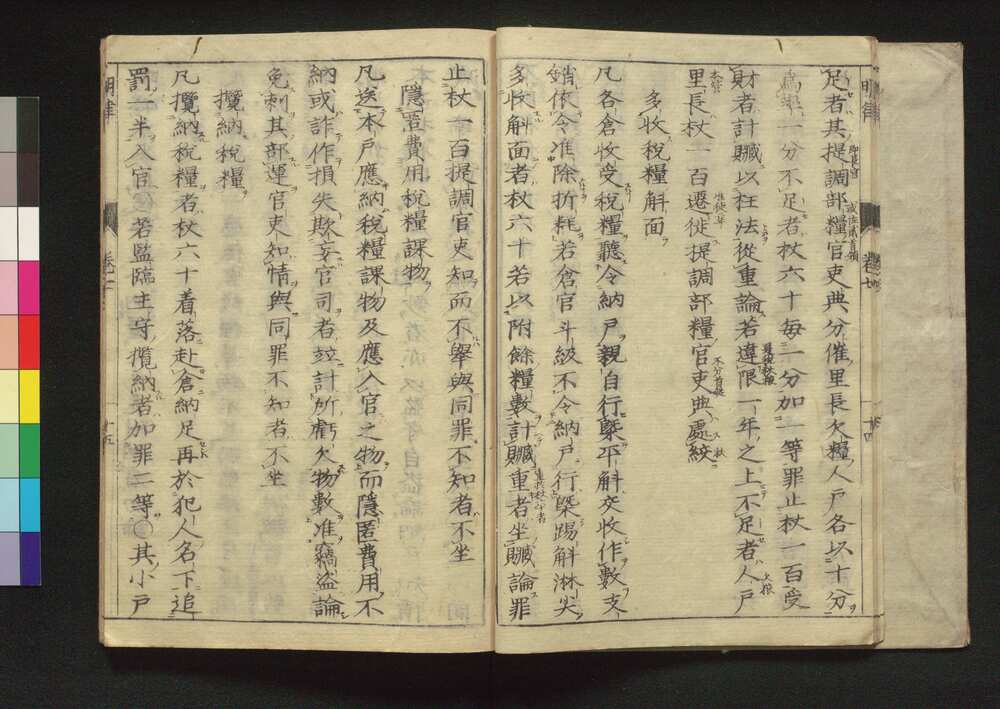 足者其提調部糧官吏典分催里長欠糧人戶各以十分
爲率一分不足者杖六十每一分加一等罪止杖一百受
財者計贓以枉法從重論若違限一年之上不足者人戶
里長杖一百遷徙提調部糧官吏典處絞
多收稅糧斛面
凡各倉收受稅糧聽令納戶親自行槩平斛交收作數支
銷依令准除折耗若倉官斗級不令納戶行槩踢斛淋尖
多收斛面者杖六十若以附餘糧數計贓重者坐贓論罪
止杖一百提調官吏知而不舉與同罪不知者不坐
隱匿費用稅糧課物
凡送本戶應納稅糧課物及應入官之物而隱匿費用不
納或詐作損失欺妄官司者竝計所虧欠物數准竊盜論
免刺其部運官吏知情與同罪不知者不坐
攬納稅糧
凡攬納稅糧者杖六十着落赴倉納足再於犯人名下追
罰一半入官若監臨主守攬納者加罪二等〇其小戶
明律
卷二
十五